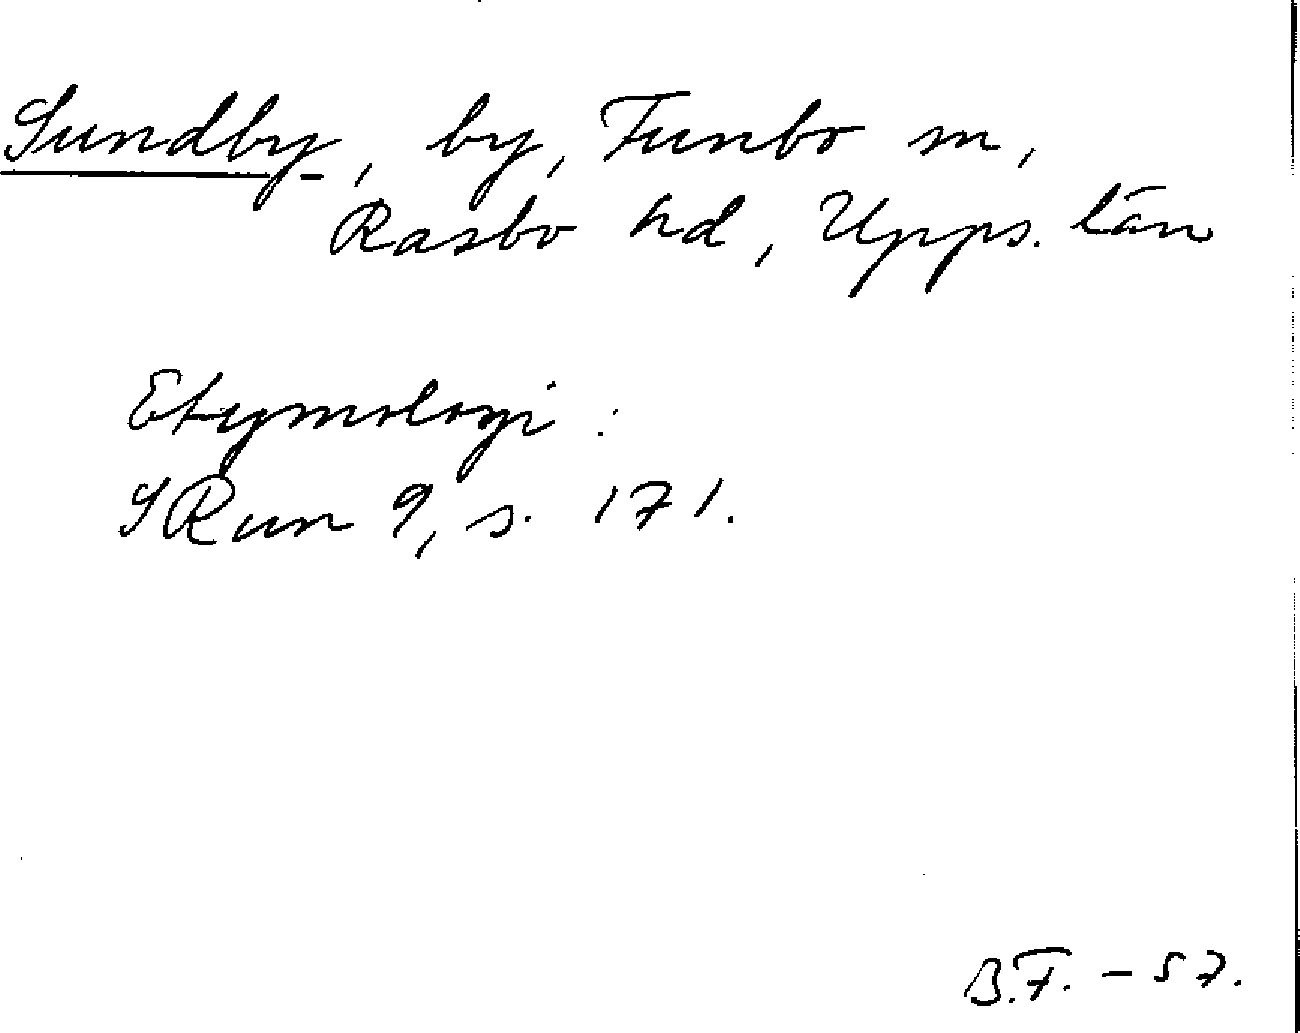 Sundby, by, Funbo sn,
Rasbo hd, Upps. län
Etymologi:
SRun 9, s. 171.
B.F. - 57.